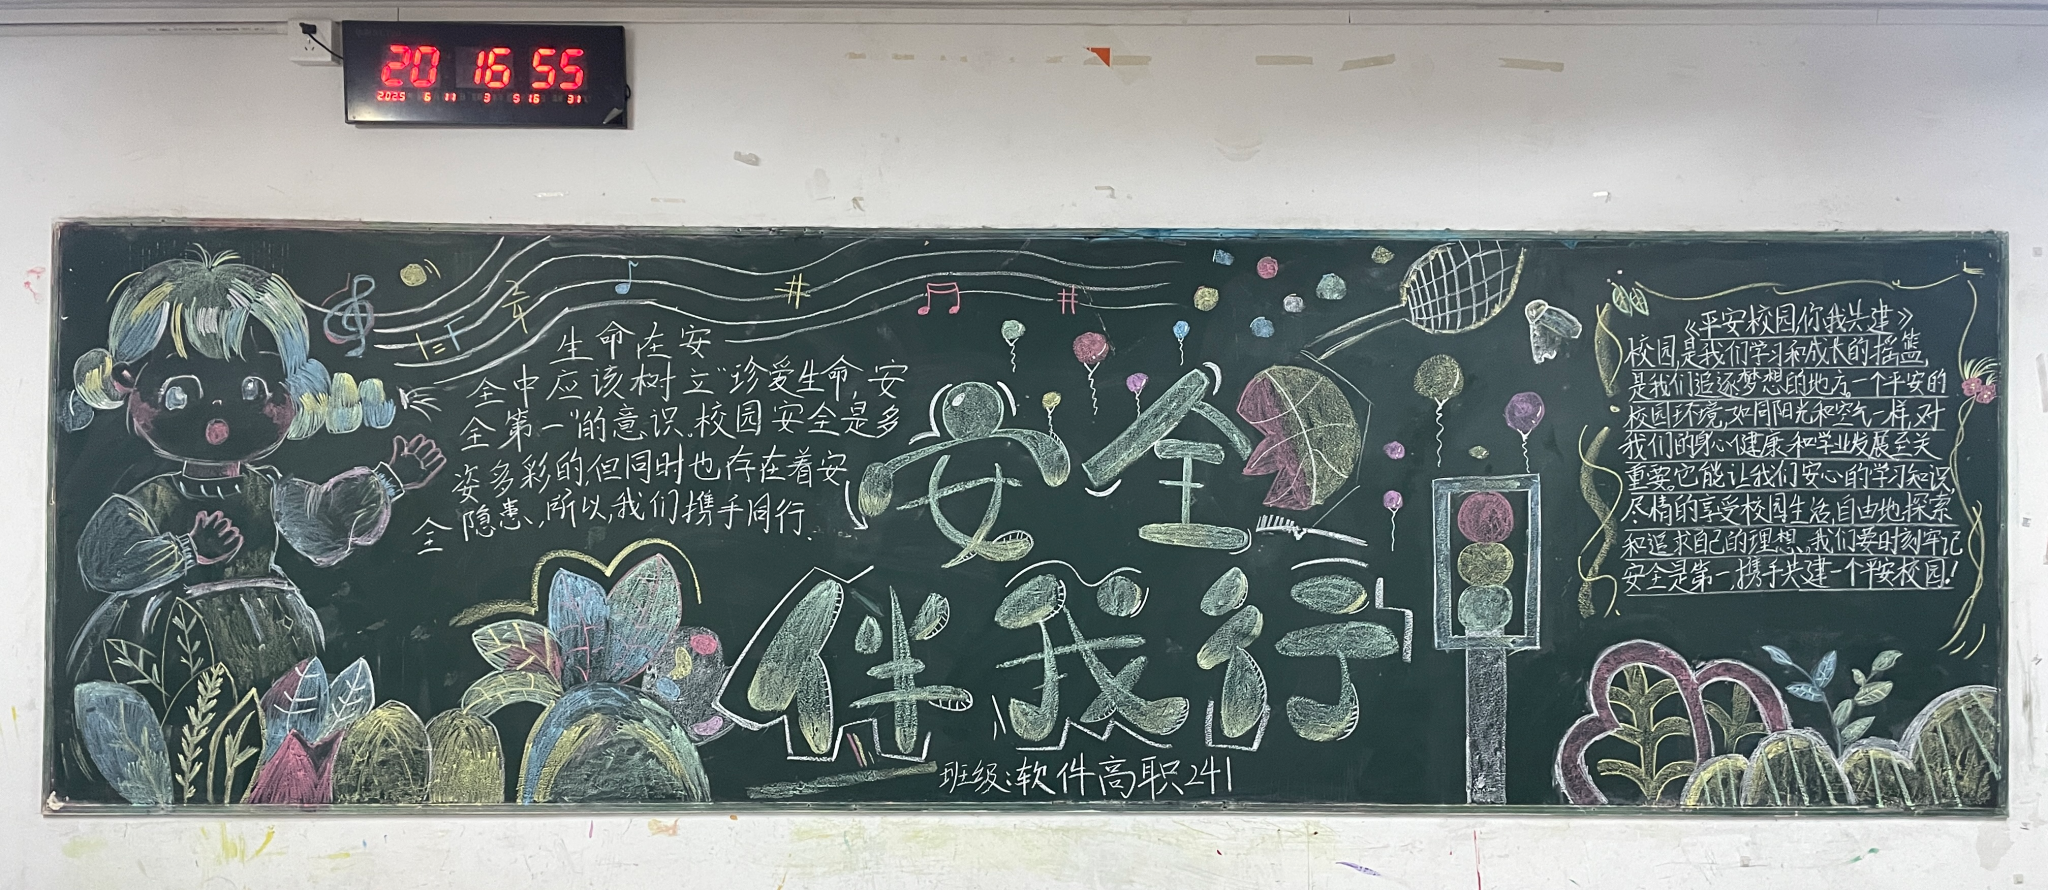 20 16 55
2025 6 11 3 5 16 31
生命在安
全中应该树立"珍爱生命,安
全第一"的意识.校园安全是多
姿多彩的,但同时也存在着安
全隐患,所以,我们携手同行.
1=F
安全
伴我行
班级:软件高职241
《平安校园你我共建》
校园,是我们学习和成长的摇篮,
是我们追逐梦想的地方.一个平安的
校园环境,如同阳光和空气一样,对
我们的身心健康和学业发展至关
重要.它能让我们安心的学习知识,
尽情的享受校园生活,自由地探索
和追求自己的理想.我们要时刻牢记
安全是第一,携手共建一个平安校园!